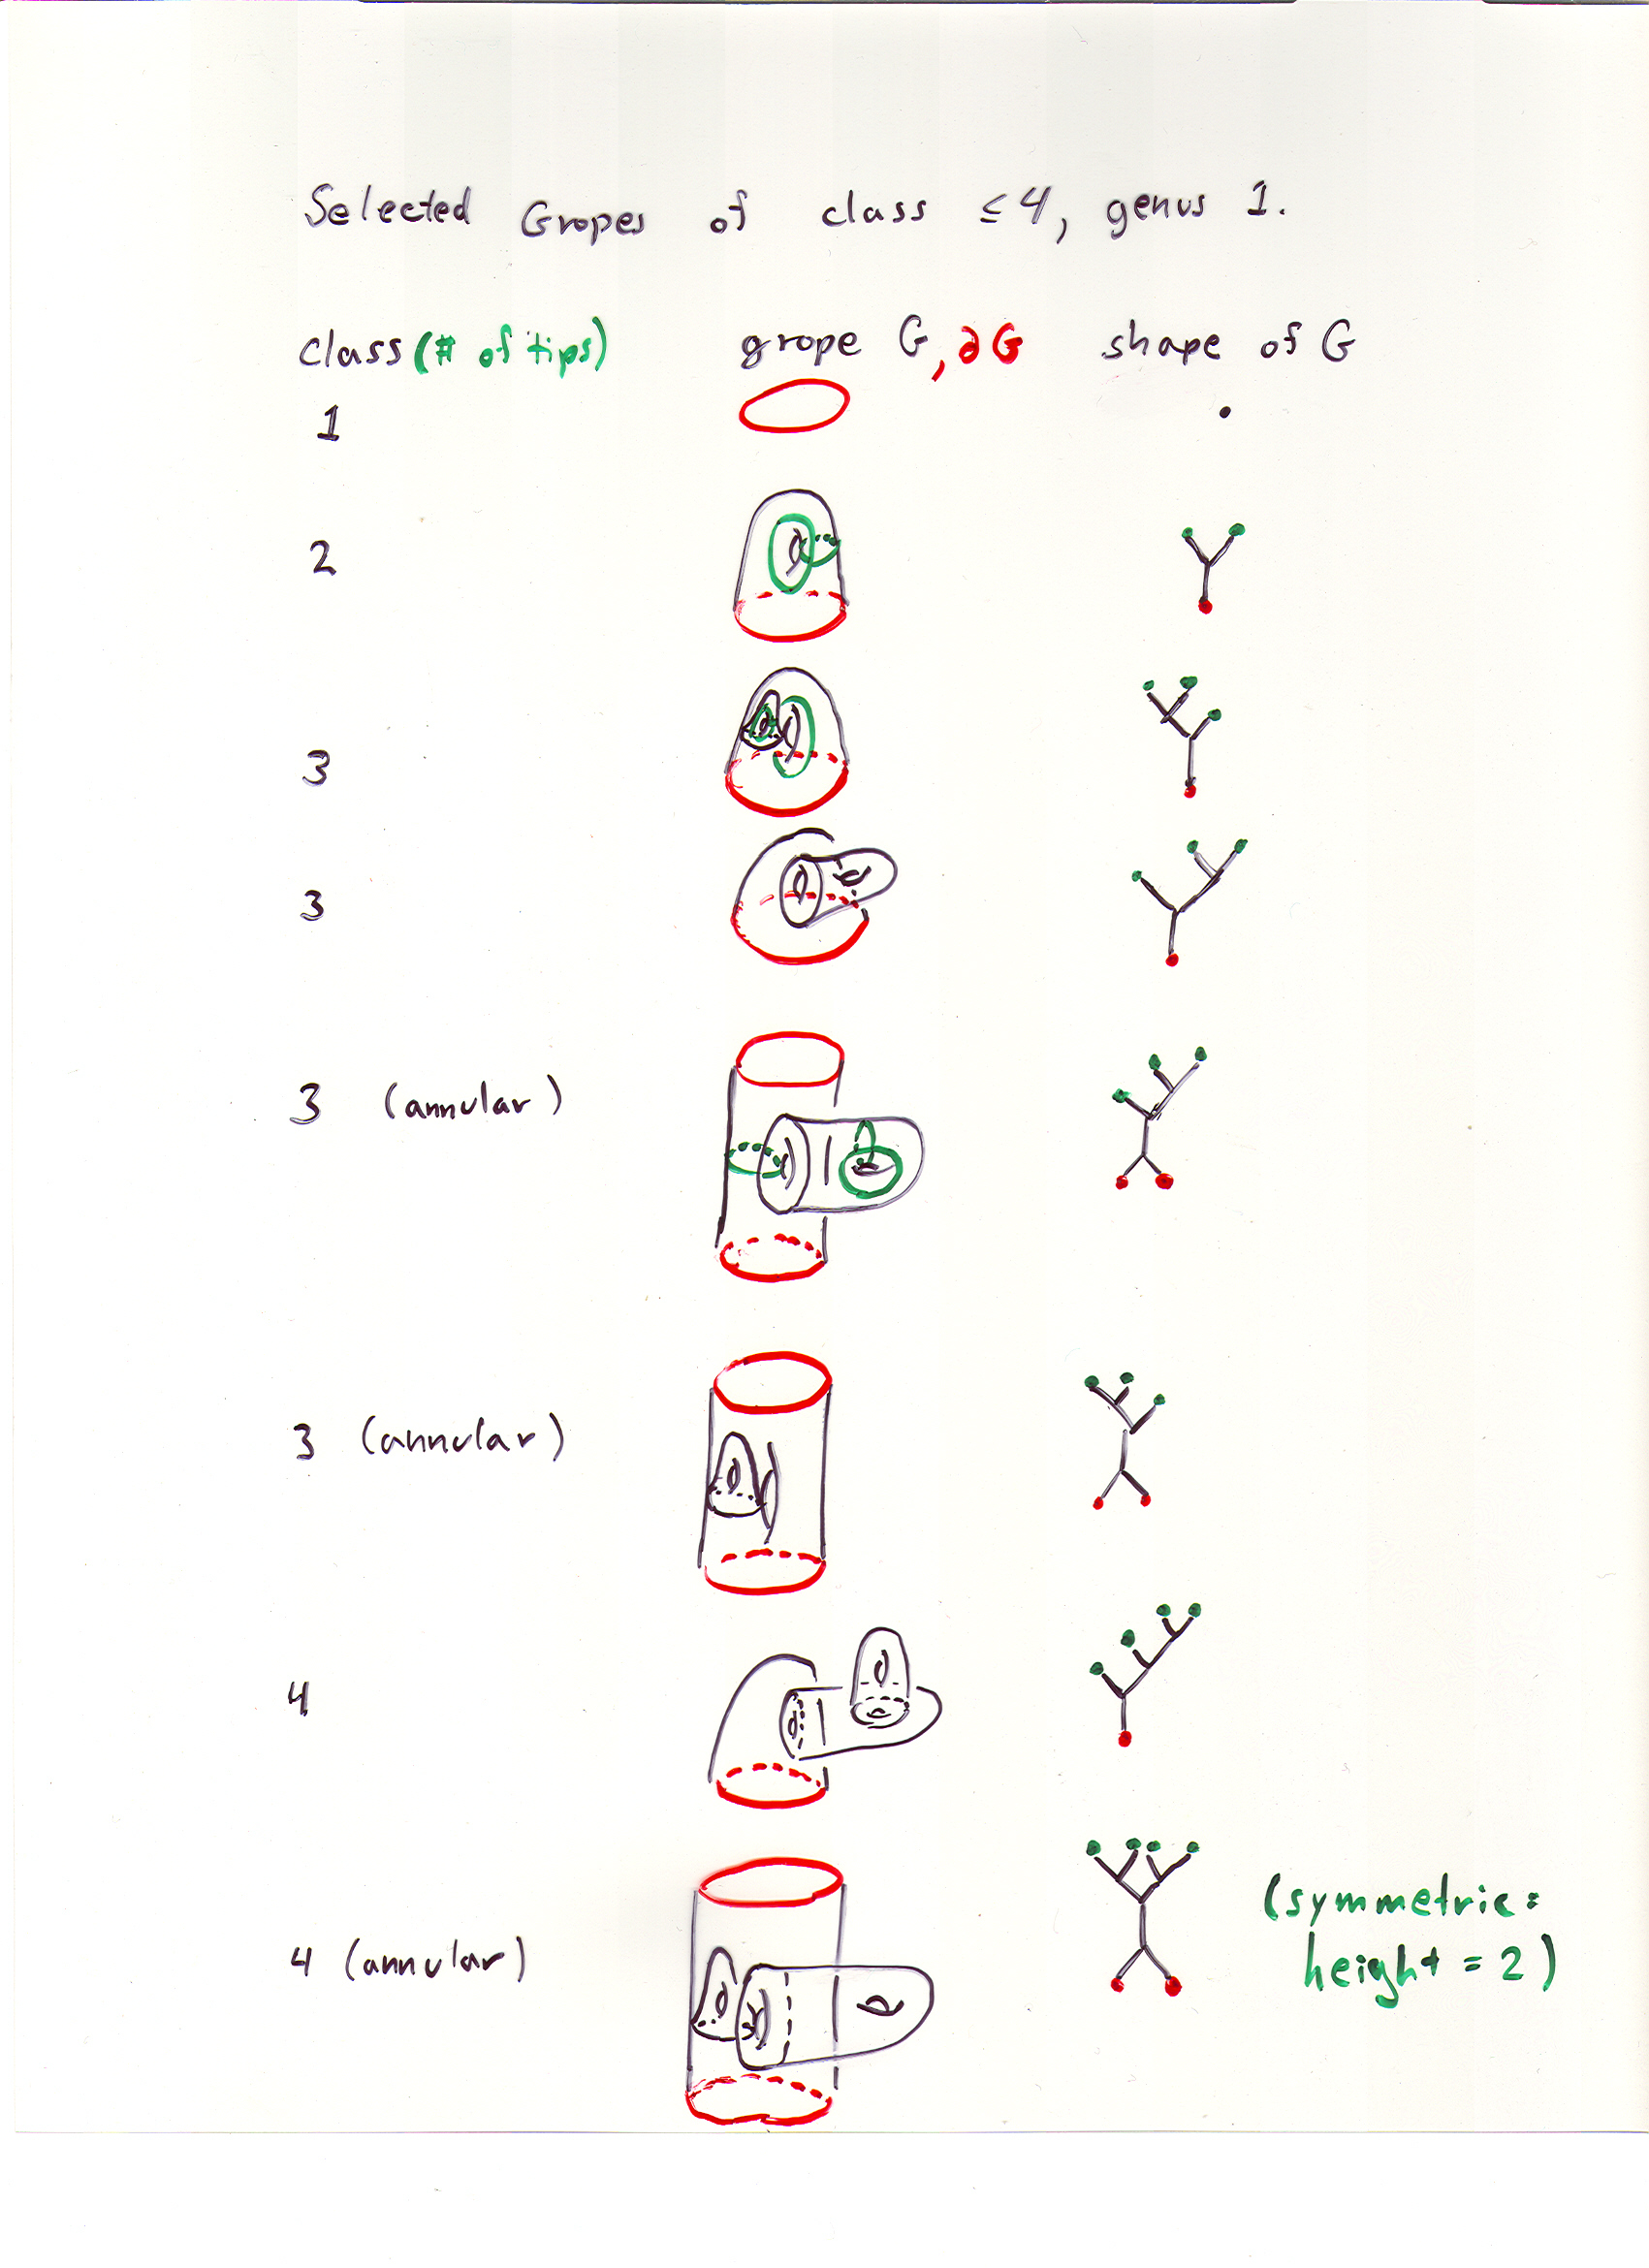 Selected Gropes of class ≤4, genus 1.
class (# of tips) grope G, ∂G shape of G
1
2
3
3
3 (annular)
3 (annular)
4
4 (annular)
(symmetric:
height = 2)